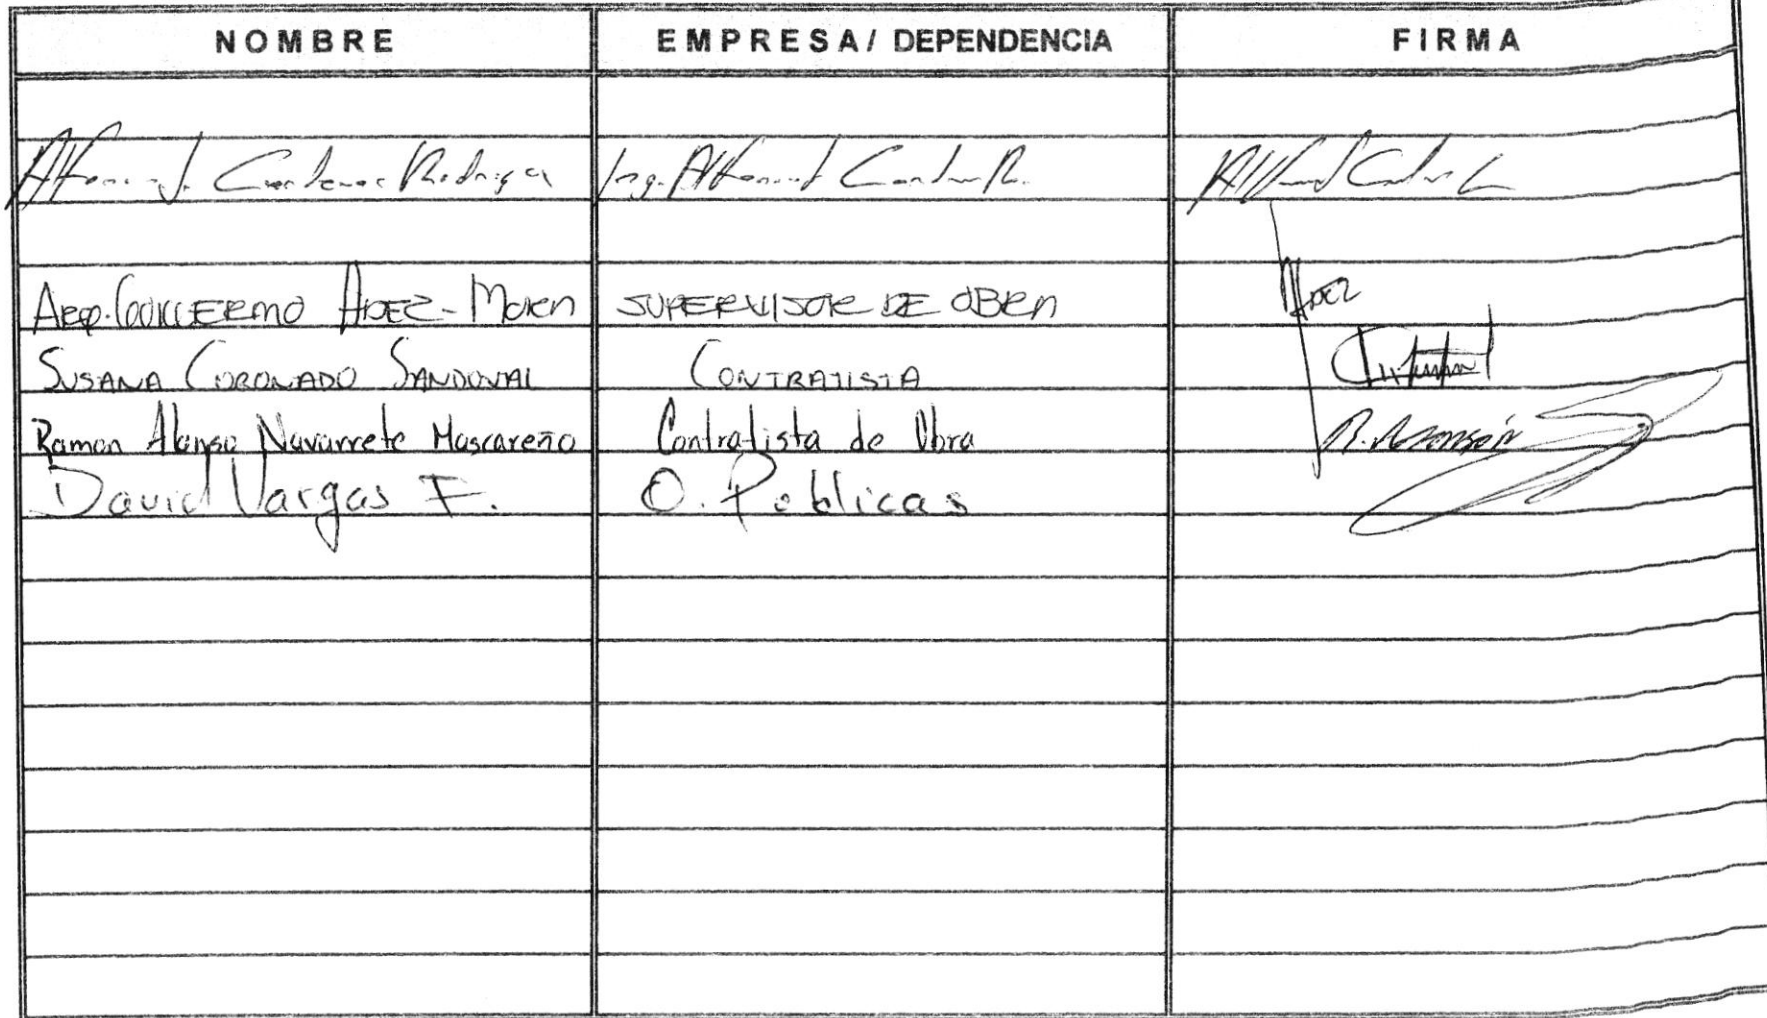 NOMBRE EMPRESA/ DEPENDENCIA FIRMA
Cardenas Rodriguez Ing.
Arq. Guillermo Hdez- SUPERVISOR DE OBRA Hdez
SUSANA CORONADO SANDOVAL CONTRATISTA
Ramon Alonso Navarrete Mascareño Contratista de Obra
David Vargas F. O. Publicas